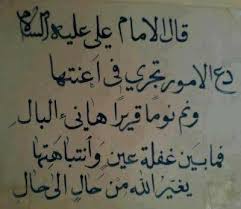 قال الامام علي عليه السلام
دع الامور تجري في اعنتها
ونم نوماً قريراً هانئ البال
فما بين غفلة عين وانتباهتها
يغير الله من حال الى حال